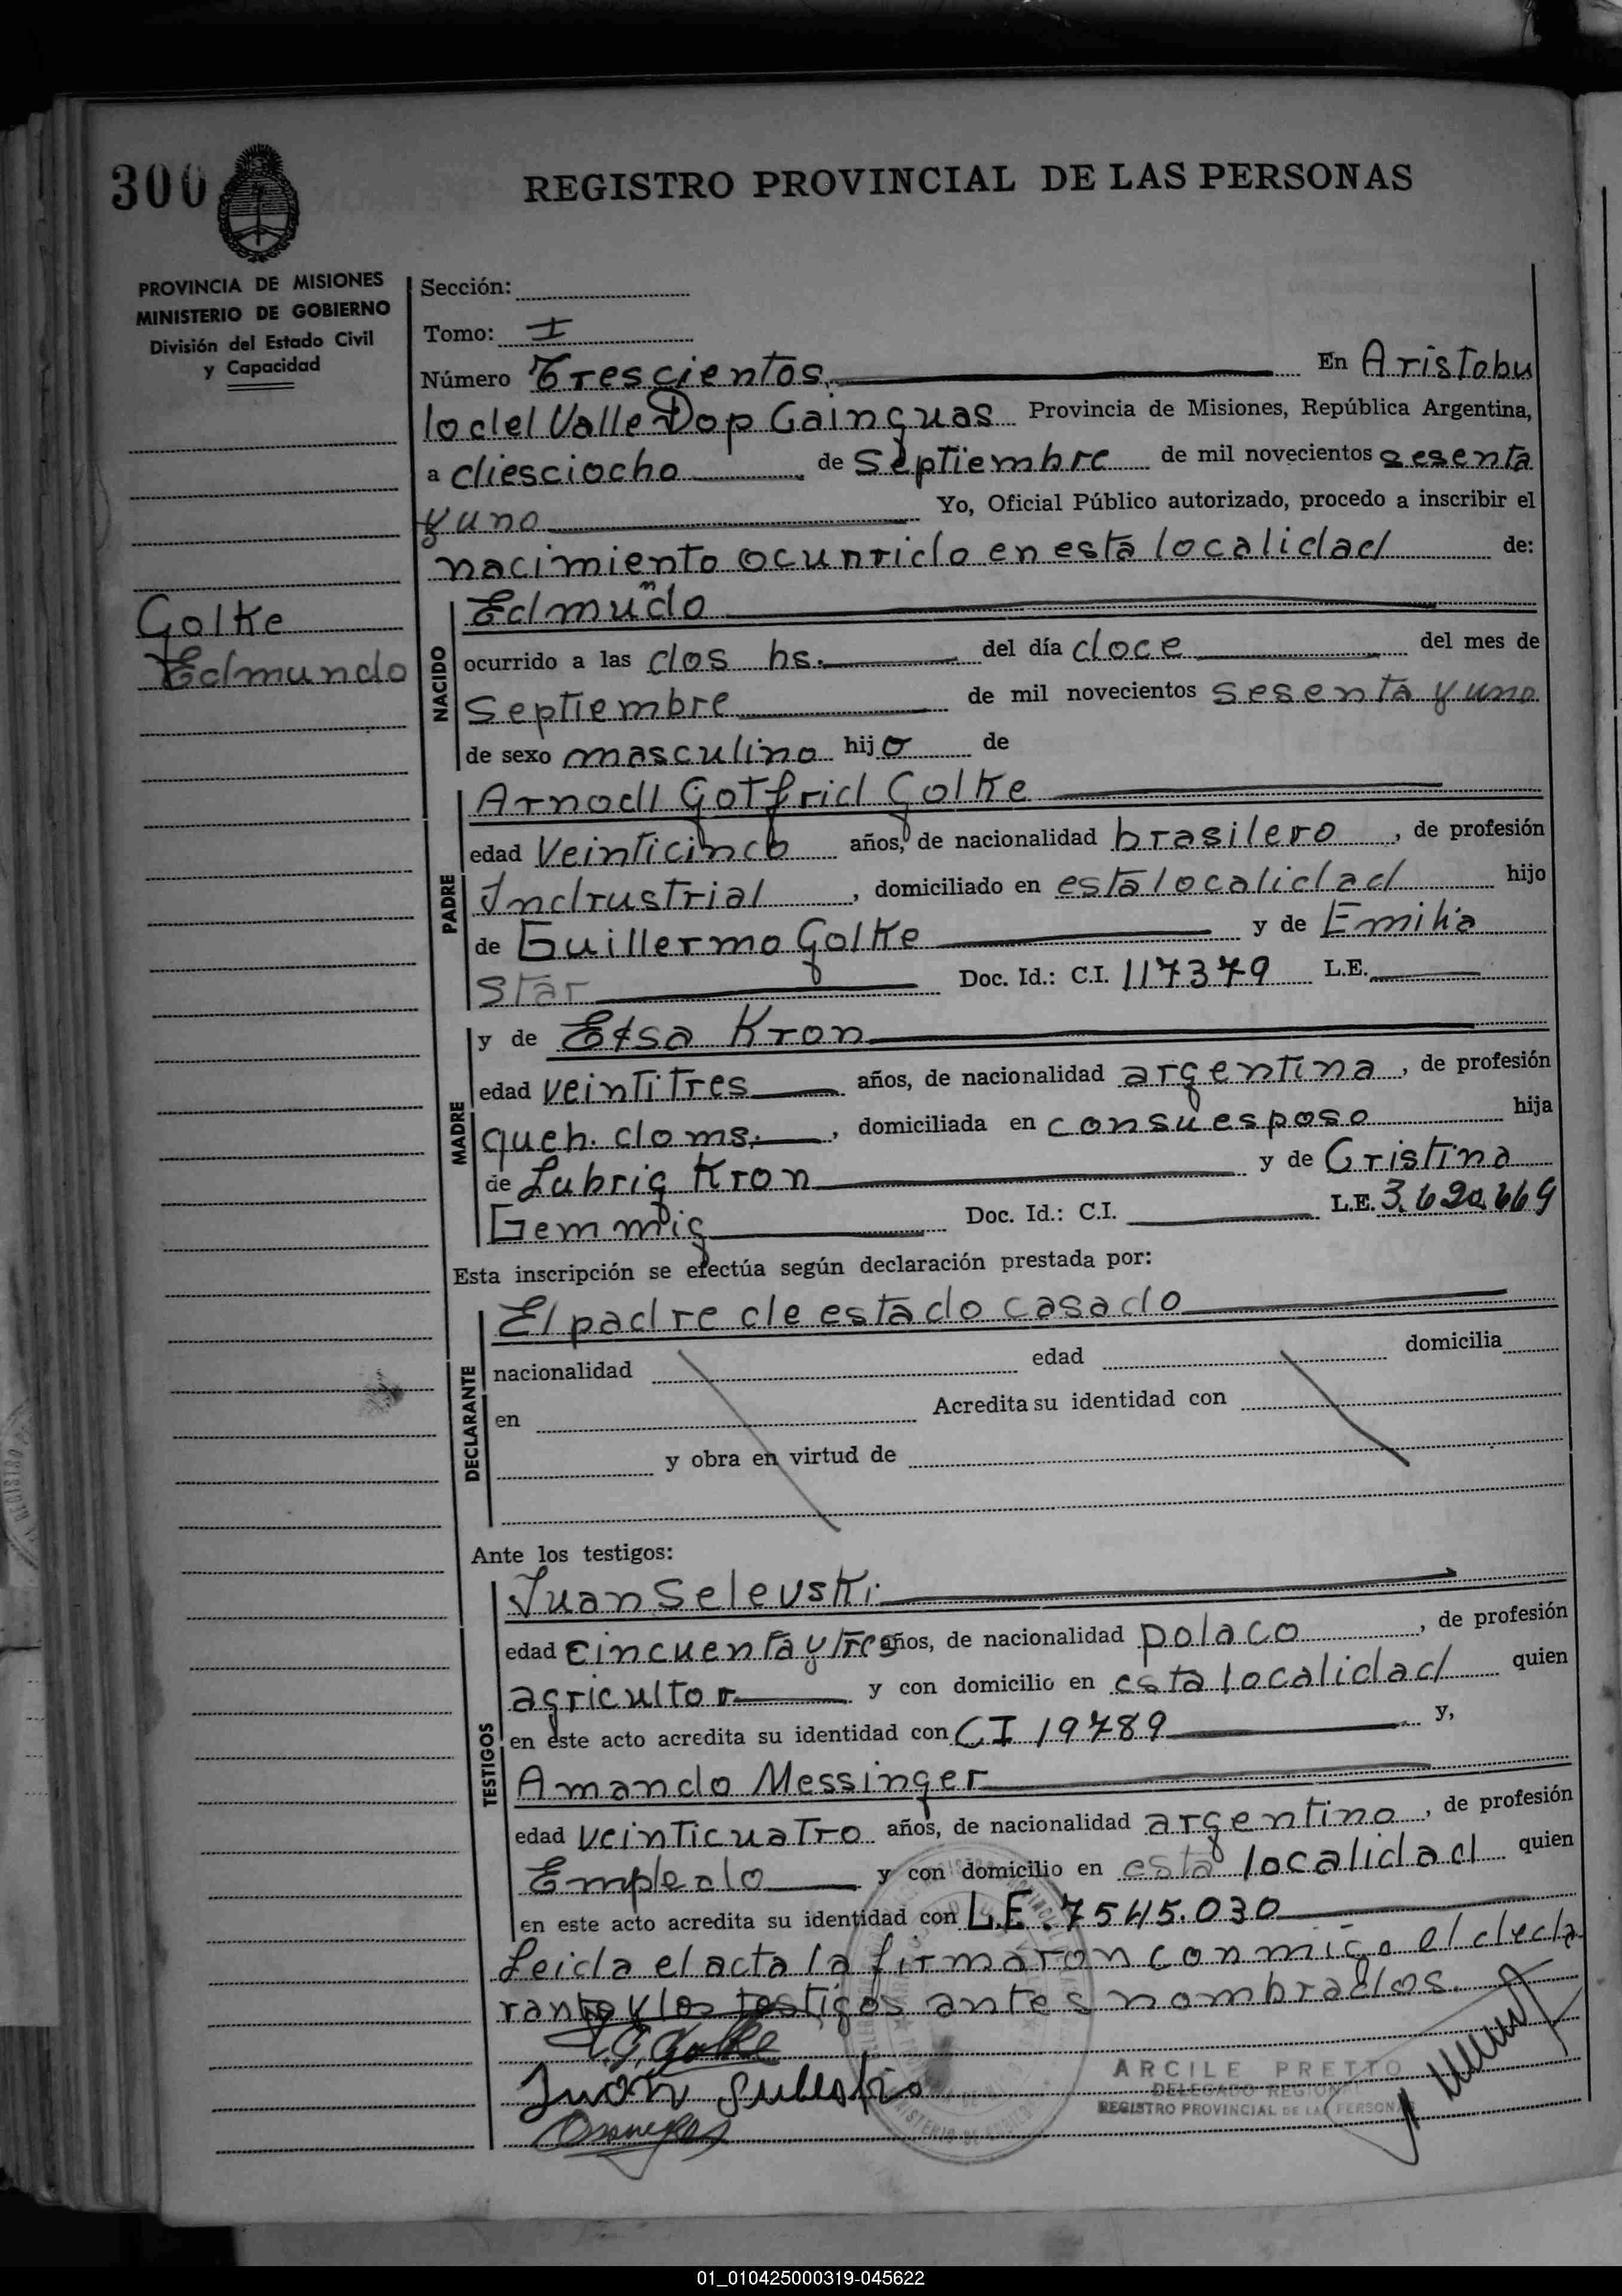 300
REGISTRO PROVINCIAL DE LAS PERSONAS
PROVINCIA DE MISIONES
MINISTERIO DE GOBIERNO
División del Estado Civil
y Capacidad
Sección:
Tomo: I
Número Trescientos. En Aristobu
lo del Valle Dop Cainguas Provincia de Misiones, República Argentina,
a diesciocho de Septiembre de mil novecientos sesenta
y uno Yo, Oficial Público autorizado, procedo a inscribir el
nacimiento ocurrido en esta localidad de:
Golke
Edmundo
NACIDO
Edmundo
ocurrido a las dos hs. del día doce del mes de
Septiembre de mil novecientos sesenta y uno
de sexo masculino hijo de
PADRE
Arnodl Gotfrid Golke
edad Veinticinco años, de nacionalidad brasilero, de profesión
Indrustrial, domiciliado en esta localidad hijo
de Guillermo Golke y de Emilia
Star Doc. Id.: C.I. 117379 L.E.
MADRE
y de Elsa Kron
edad veintitres años, de nacionalidad argentina, de profesión
queh. doms., domiciliada en con su esposo hija
de Lubrig Kron y de Cristina
Gemmig Doc. Id.: C.I. L.E. 3.620.669
Esta inscripción se efectúa según declaración prestada por:
DECLARANTE
El padre de estado casado
nacionalidad edad domicilia
en Acredita su identidad con
y obra en virtud de
Ante los testigos:
TESTIGOS
Juan Selevski
edad cincuenta y tres años, de nacionalidad polaco, de profesión
agricultor y con domicilio en esta localidad quien
en este acto acredita su identidad con CI 19789 y,
Amando Messinger
edad veinticuatro años, de nacionalidad argentino, de profesión
Empledo y con domicilio en esta localidad quien
en este acto acredita su identidad con L.E. 7545.030
Leida el acta la firmaron conmigo el decla
rante y los testigos antes nombrados.
Golke
Juan
ARCILE PRETTO
DELEGADO REGIONAL
REGISTRO PROVINCIAL DE LAS PERSONAS
01_010425000319-045622